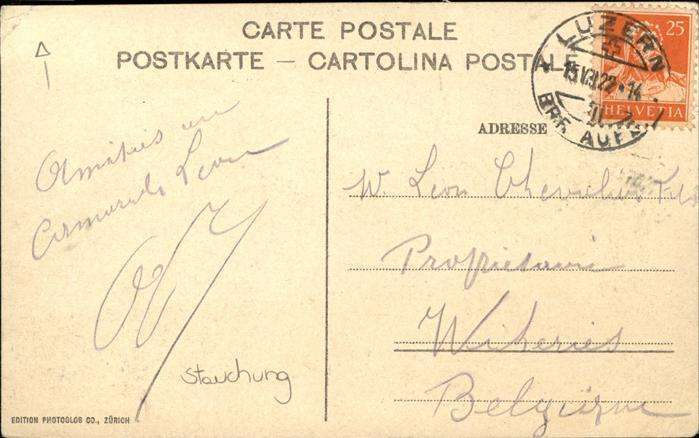 CARTE POSTALE
POSTKARTE — CARTOLINA POSTALE
LUZERN
15 VII 22 - 14
BRF. AUFG.
25
HELVETIA
ADRESSE
Amitiés
Léon
Stauchung
Léon Chevalier
Propriétaire
Wiheries
Belgique
EDITION PHOTOGLOB CO., ZÜRICH